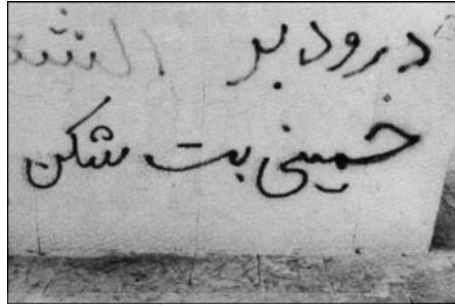 درود بر
خمینی بت شکن